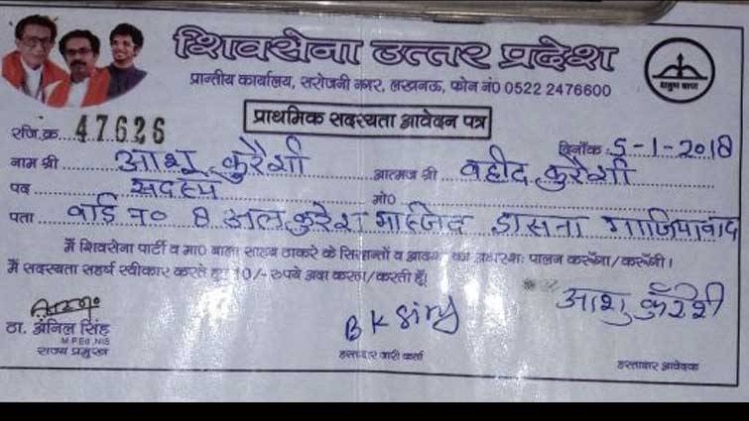 शिवसेना उत्तर प्रदेश
प्रान्तीय कार्यालय, सरोजनी नगर, लखनऊ, फोन नं0 0522 2476600
धनुष बाण
प्राथमिक सदस्यता आवेदन पत्र
रजि.क्र. 47626 दिनाँक 5-1-2018
नाम श्री आशू कुरैशी आत्मज श्री वहीद कुरैशी
पद सदस्य मो0
पता वार्ड न० 8 अलकुरेश मस्जिद डासना गाजियाबाद
मैं शिवसेना पार्टी व मा0 बाला साहब ठाकरे के सिद्धान्तों व का अक्षरशः पालन करूँगा/करूँगी।
मैं सदस्यता सहर्ष स्वीकार करते हुए 10/- रुपये अदा करता/करती हूँ।
ठा. अनिल सिंह
M.P.Ed.,NIS
राज्य प्रमुख
B K Singh
हस्ताक्षर जारी कर्ता
आशु कुरैशी
हस्ताक्षर आवेदक